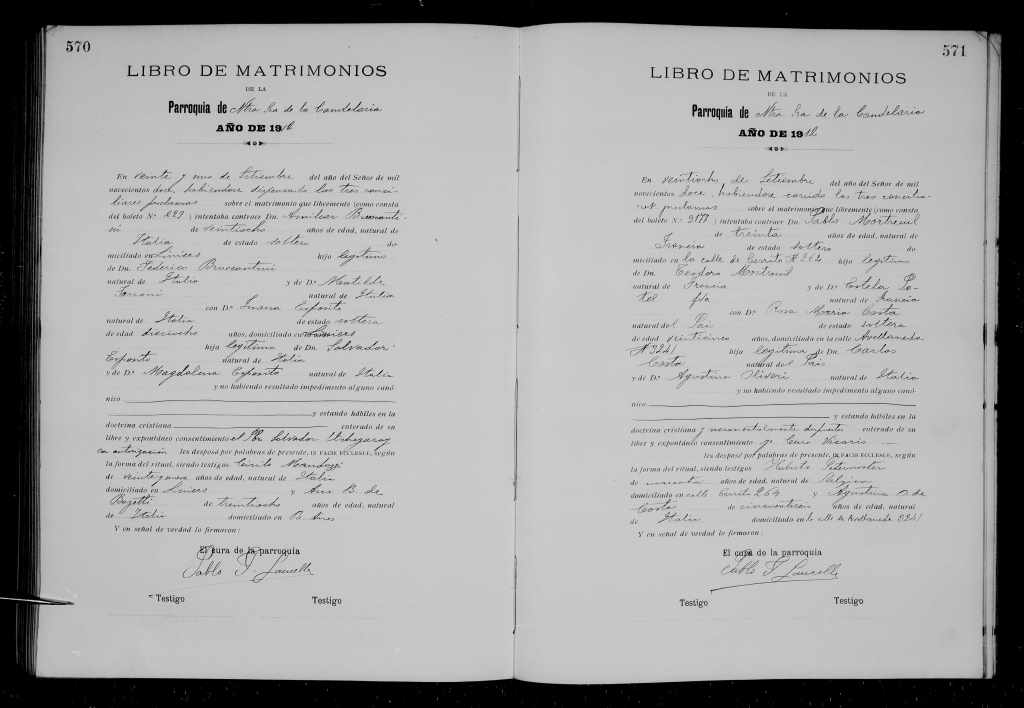 570
LIBRO DE MATRIMONIOS
DE LA
Parroquia de Ntra Sra de la Candelaria
AÑO DE 1912
En veinte y uno de Setiembre del año del Señor de mil
novecientos doce, habiendose dispensado las tres conci-
liares proclamas sobre el matrimonio que libremente (como consta
del boleto N.º 229) intentaba contraer Dn. Amilcar
de veintiocho años de edad, natural de
Italia de estado soltero do
miciliado en Liniers hijo legitimo
de Dn. Federico
natural de Italia y de Dª. Matilde
natural de Italia
con Dª. Juana Esposito
natural de Italia de estado soltera
de edad dieciocho años, domiciliado en Liniers
hija legitima de Dn. Salvador
Esposito natural de Italia
y de Dª. Magdalena Esposito natural de Italia
y no habiendo resultado impedimento alguno canó
nico
y estando hábiles en la
doctrina cristiana enterado de su
libre y expontáneo consentimiento el Pbro Salvador Etchegaray
con autorización les desposé por palabras de presente, IN FACIE ECCLESIÆ, según
la forma del ritual, siendo testigos
de años de edad, natural de Italia
domiciliado en Liniers y Ana B. de
de treintiocho años de edad, natural
de Italia domiciliado en B. Aires
Y en señal de verdad lo firmaron:
El cura de la parroquia
Pablo F. Lancelle
Testigo Testigo
571
LIBRO DE MATRIMONIOS
DE LA
Parroquia de Ntra Sra de la Candelaria
AÑO DE 1912
En veintiocho de Setiembre del año del Señor de mil
novecientos doce, habiendose corrido las tres concilia-
res proclamas sobre el matrimonio que libremente (como consta
del boleto N.º 2177) intentaba contraer Dn. Pablo Mortreuil
de treinta años de edad, natural de
Francia de estado soltero do
miciliado en la calle de Cerrito Nº 264 hijo legitimo
de Dn. Teodoro Mortreuil
natural de Francia y de Dª.
natural de Francia
con Dª. Rosa Maria Costa
natural del Pais de estado soltera
de edad veinticinco años, domiciliado en la calle Avellaneda
Nº 3241 hija legitima de Dn. Carlos
Costa natural del Pais
y de Dª. Agustina Oliveri natural de Italia
y no habiendo resultado impedimento alguno canó
nico
y estando hábiles en la
doctrina cristiana y sacramentalmente dispuestos enterado de su
libre y expontáneo consentimiento yo Cura Vicario
les desposé por palabras de presente, IN FACIE ECCLESIÆ, según
la forma del ritual, siendo testigos
de años de edad, natural de Belgica
domiciliado en calle Cerrito 264 y Agustina O. de
Costa de años de edad, natural
de Italia domiciliado en la calle de Avellaneda 3241
Y en señal de verdad lo firmaron:
El cura de la parroquia
Pablo F Lancelle
Testigo Testigo